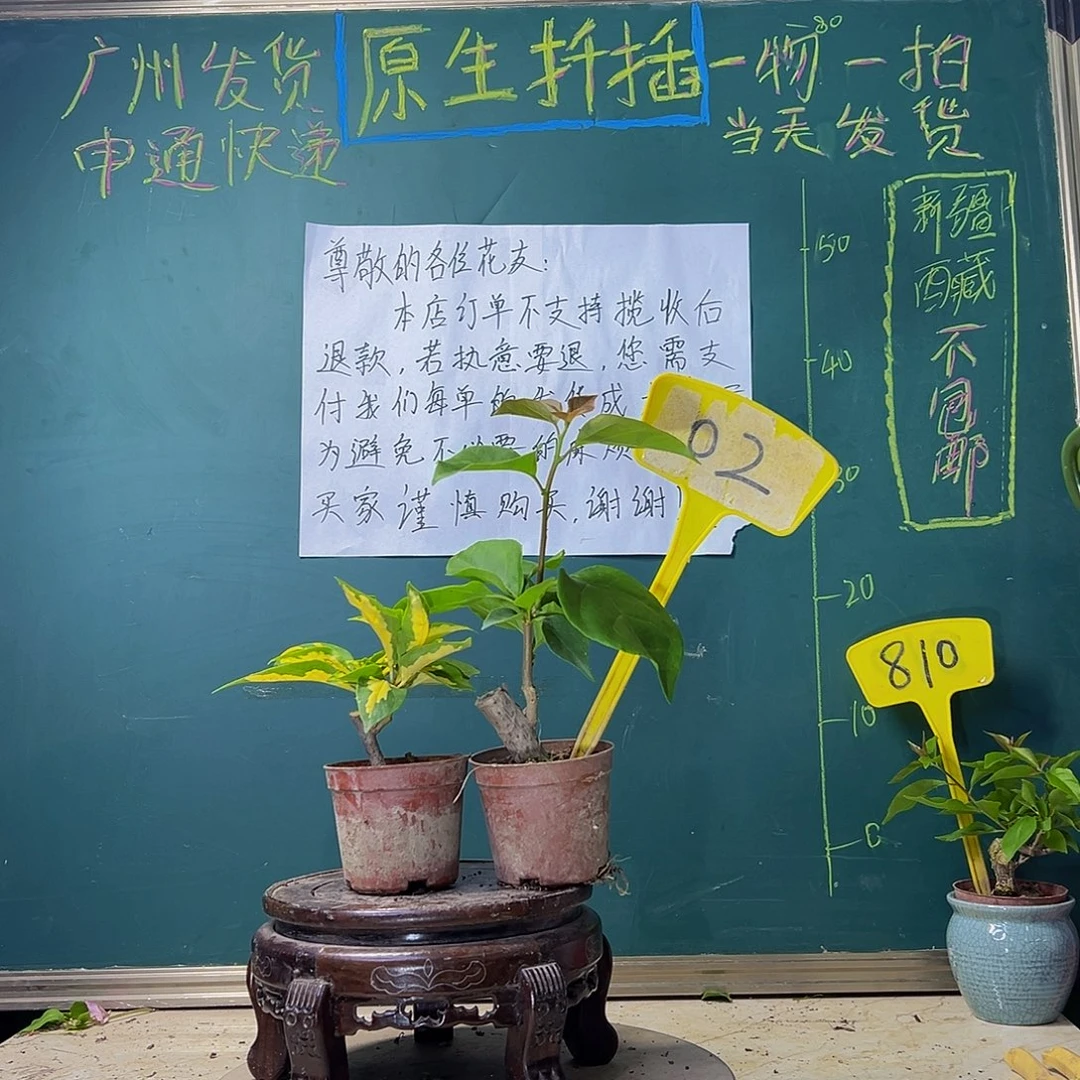 广州发货
申通快递
原生扦插
一物一拍
80
当天发货
新疆
西藏
不同邮
尊敬的各位花友:
本店订单不支持揽收后
退款,若执意要退,您需支
付我们每单的发货成
为避免不必要的麻烦
买家谨慎购买,谢谢!
02
810
50
40
30
20
10
0